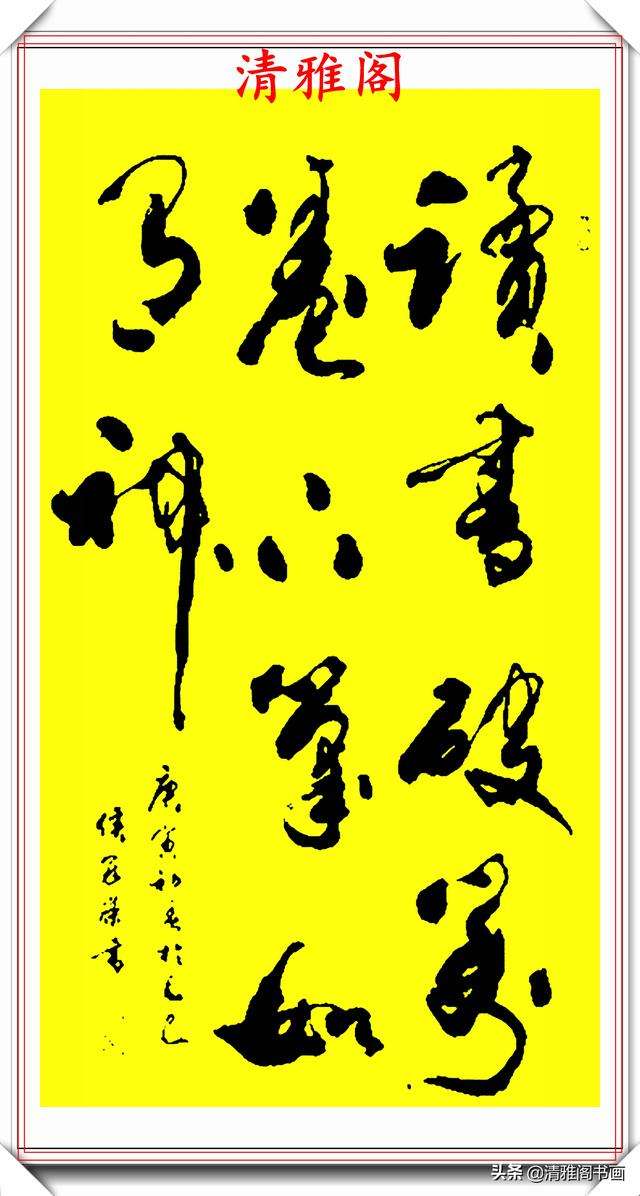 清雅阁
讀書破萬
卷下筆如
有神
庚寅初春於
書
头条 @清雅阁书画